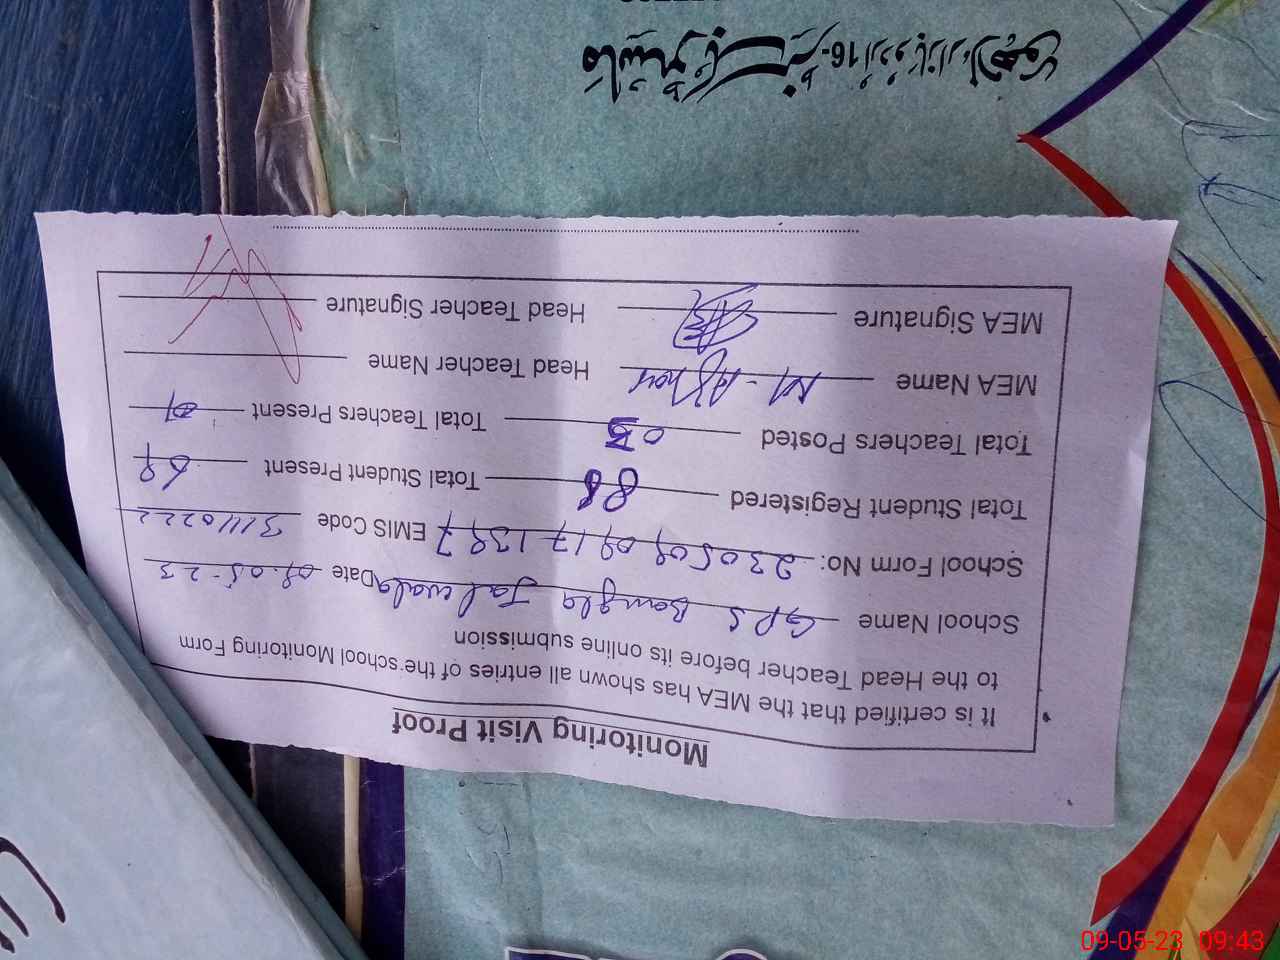 Monitoring Visit Proof
It is certified that the MEA has shown all entries of the school Monitoring Form
to the Head Teacher before its online submission
School Name GPS Bangla Jalwala Date 09.05-23
School Form No: 23050909171397 EMIS Code 31110222
Total Student Registered 88 Total Student Present 69
Total Teachers Posted 03 Total Teachers Present
MEA Name M-Azhar Head Teacher Name
MEA Signature Head Teacher Signature
16-اردو بازار، لاہور
09-05-23 09:43